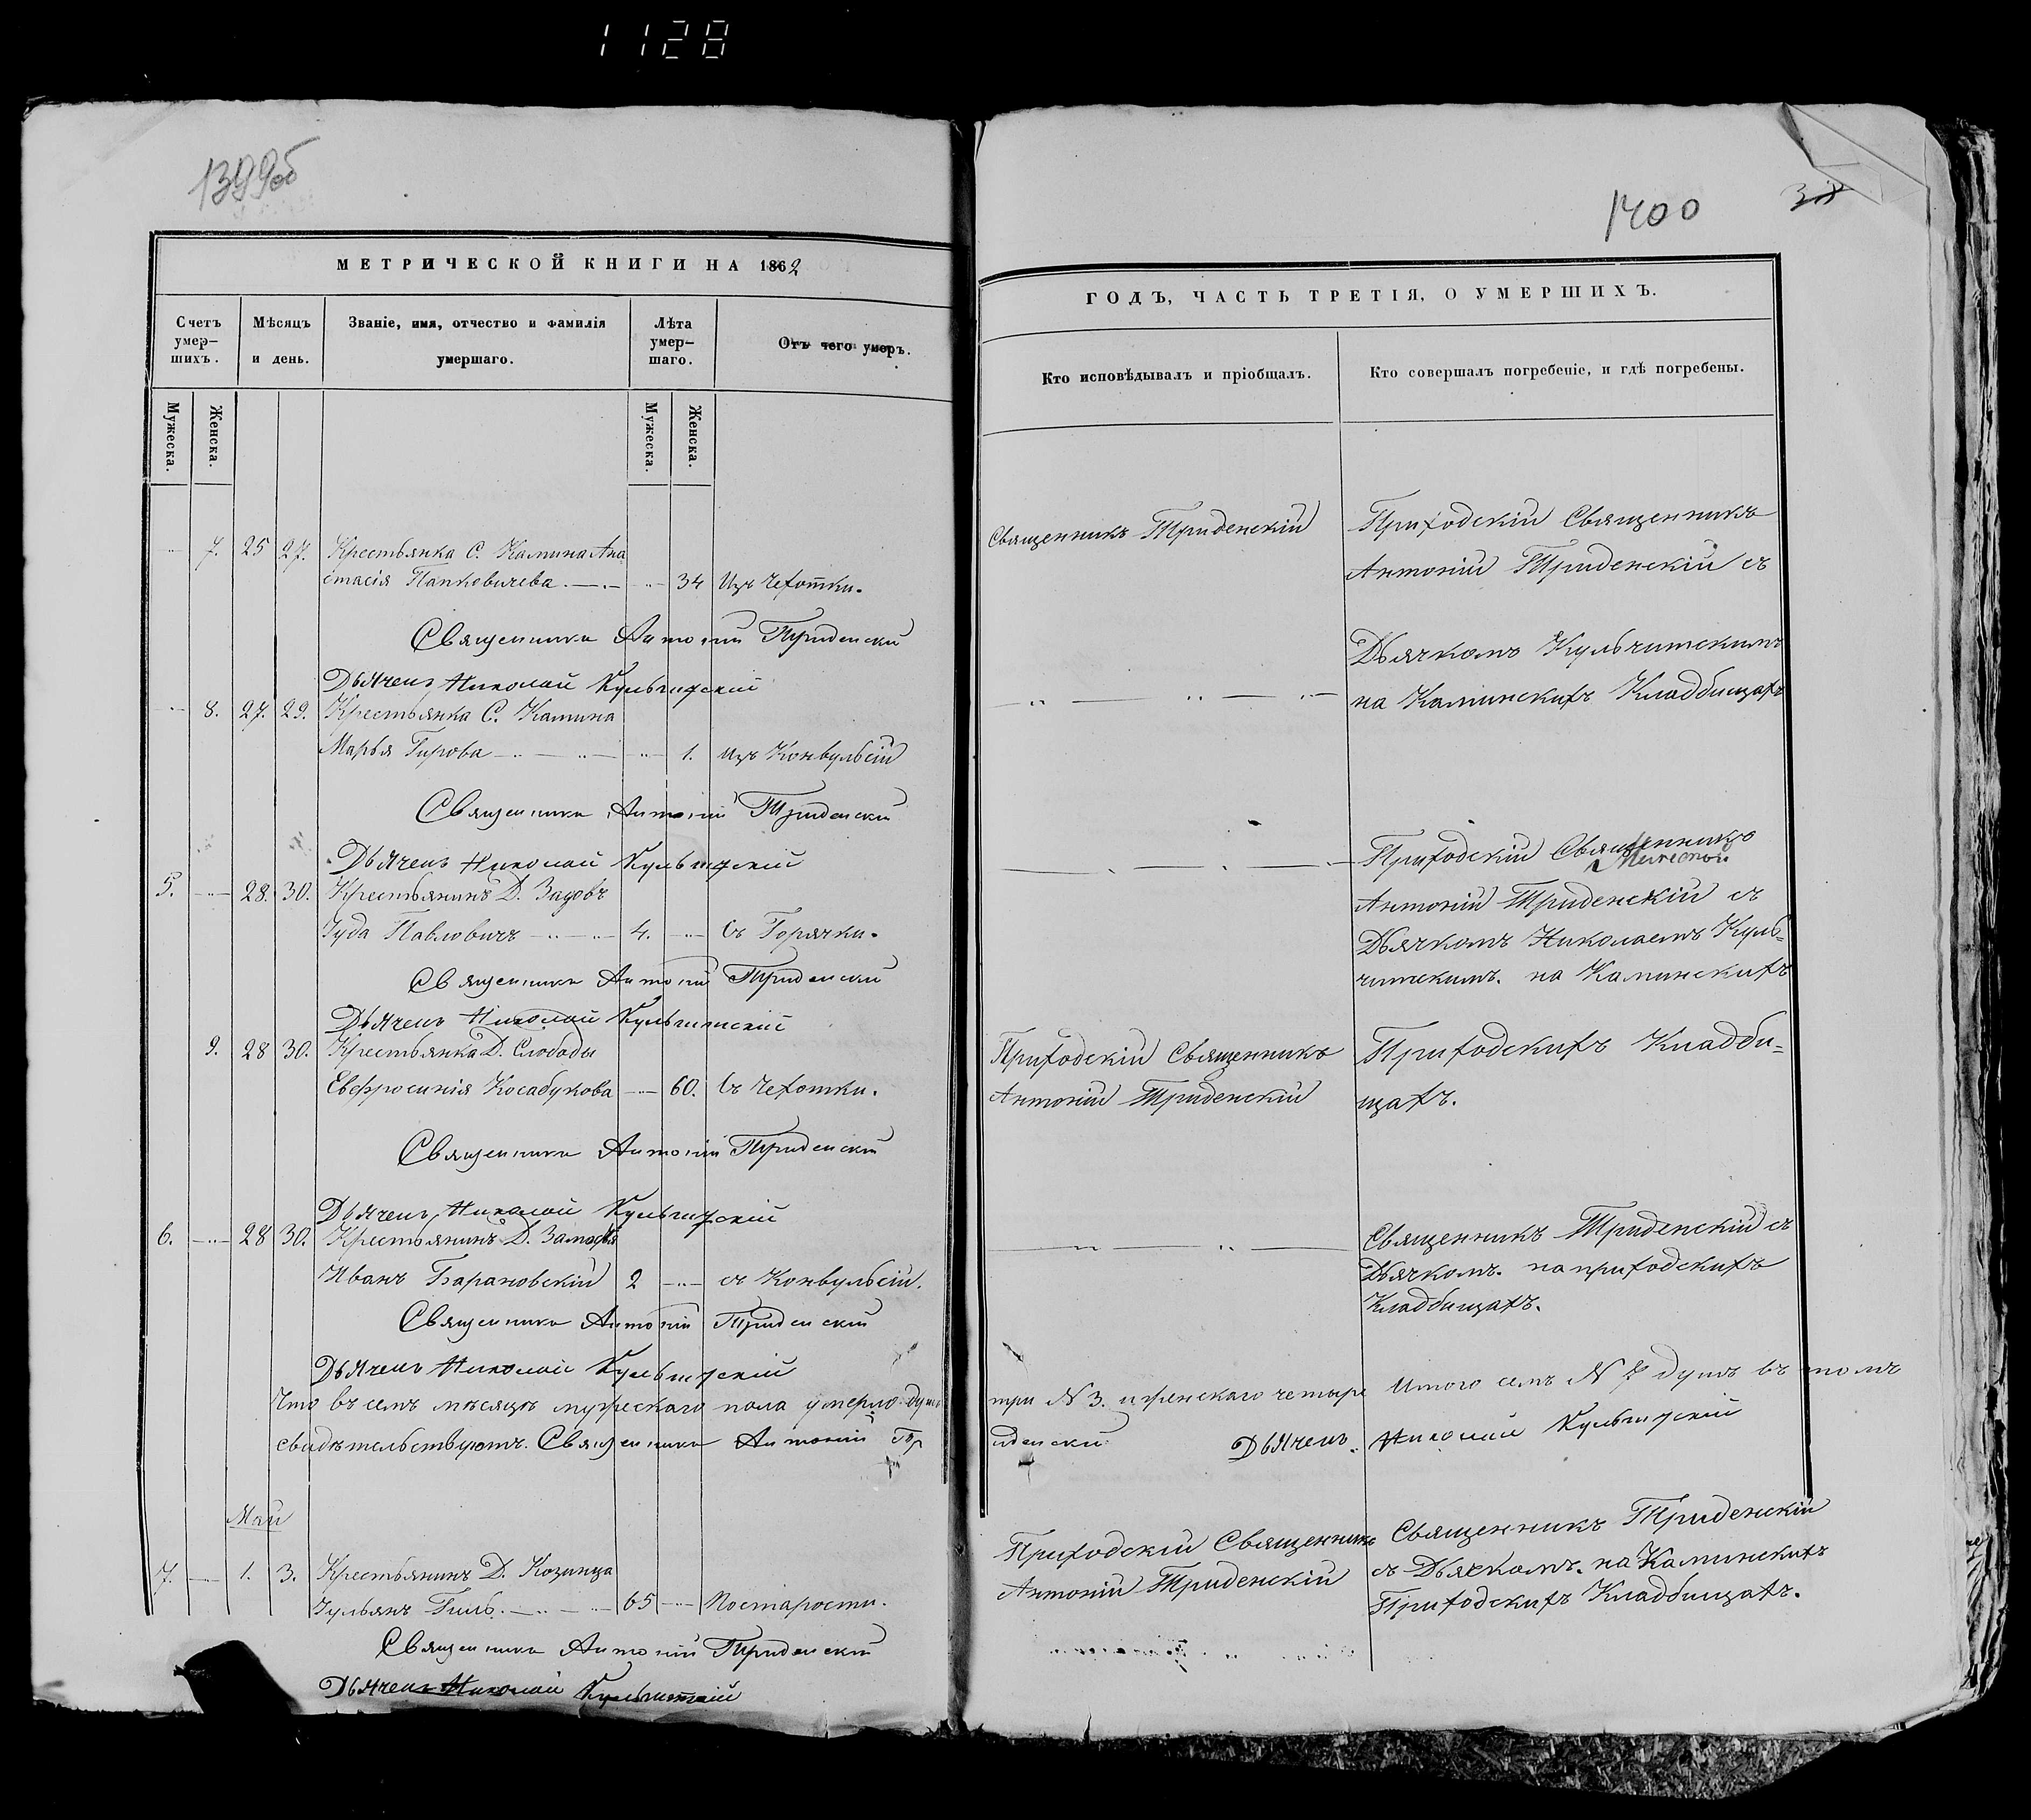 1128
1399об
МЕТРИЧЕСКОЙ КНИГИ НА 1862
Счетъ умер-шихъ.
Мѣсяцъ и день.
Званіе, имя, отчество и фамилія умершаго.
Лѣта умер-шаго.
Отъ чего умеръ.
Мужеска.
Женска.
Мужеска.
Женска.
7. 25 27. Крестьянка С. Камина Ана
стасія Папковичева 34 Изъ Чехотки.
Священникъ Антоній Триденскій
Дьячекъ Николай Кульчицкій
8. 27. 29. Крестьянка С. Камина
Марья Гирова 1. изъ Конвульсій
Священникъ Антоній Триденскій
Дьячекъ Николай Кульчицкій
5. 28. 30. Крестьянинъ Д.
Іуда Павловичъ 4. Съ Горячки.
Священникъ Антоній Триденскій
Дьячекъ Николай Кульчицкій
9. 28 30. Крестьянка Д. Слободы
Евфросинія Косабукова 60. Съ Чехотки.
Священникъ Антоній Триденскій
Дьячекъ Николай Кульчицкій
6. 28 30. Крестьянинъ Д.
Иванъ Барановскій 2 съ Конвульсій.
Священникъ Антоній Триденскій
Дьячекъ Николай Кульчицкій
Что въ семъ мѣсяцѣ мужескаго пола умерло душъ
свидѣтельствуютъ. Священникъ Антоній Тр
Май
7. 1. 3. Крестьянинъ Д. Козинца
Іульянъ Гиль. 65 Постарости.
Священникъ Антоній Триденскій
Дьячекъ Николай Кульчицкій
1400
ГОДЪ, ЧАСТЬ ТРЕТІЯ, О УМЕРШИХЪ.
Кто исповѣдывалъ и пріобщалъ.
Кто совершалъ погребеніе, и гдѣ погребены.
Священникъ Триденскій
Приходскій Священникъ
Антоній Триденскій съ
Дьячкомъ Кульчитскимъ
на Каминскихъ Кладбищахъ
Приходскій Священникъ
Антоній Триденскій съ
Дьячкомъ Николаемъ Куль-
читскимъ. на Каминскихъ
Приходскій Священникъ
Антоній Триденскій
Приходскихъ Кладби-
щахъ.
Священникъ Триденскій съ
Дьячкомъ. на приходскихъ
Кладбищахъ.
три N 3. и женскаго четыре Итого семъ N 7 душъ въ томъ
иденскій Дьячекъ Николай Кульчицкій
Приходскій Священникъ
Антоній Триденскій
Священникъ Триденскій
съ Дьячкомъ. на Каминскихъ
Приходскихъ Кладбищахъ.